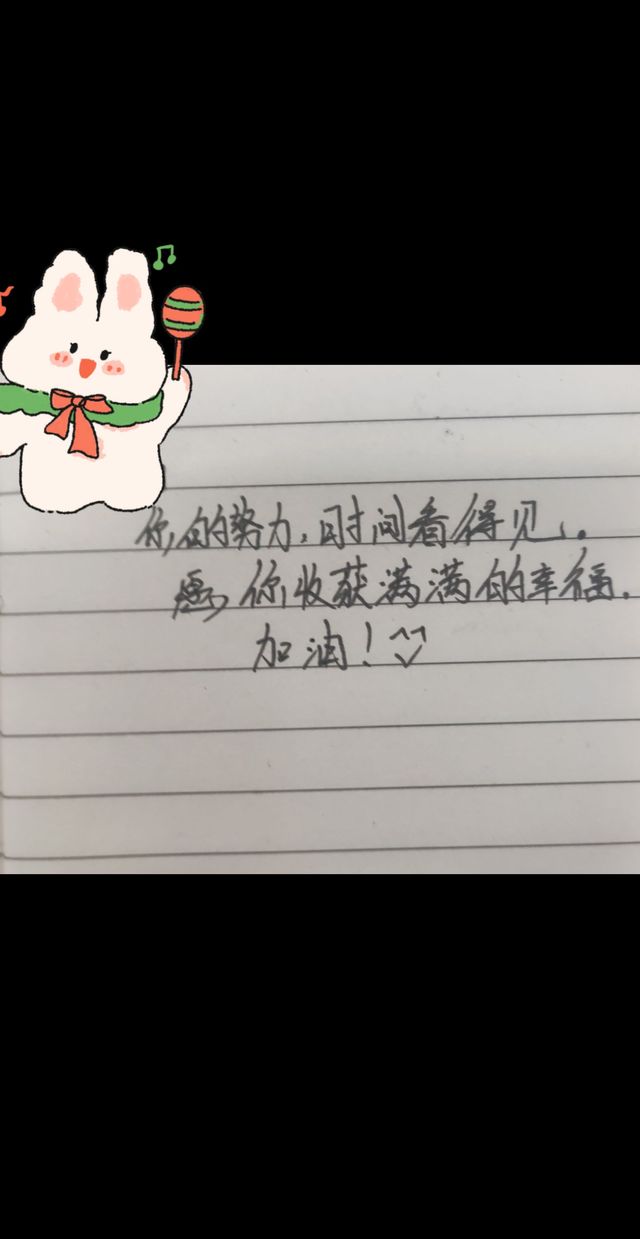 你的努力,时间看得见.
愿你收获满满的幸福.
加油!